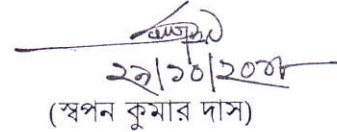 ২৯/১০/২০১৮
(স্বপন কুমার দাস)